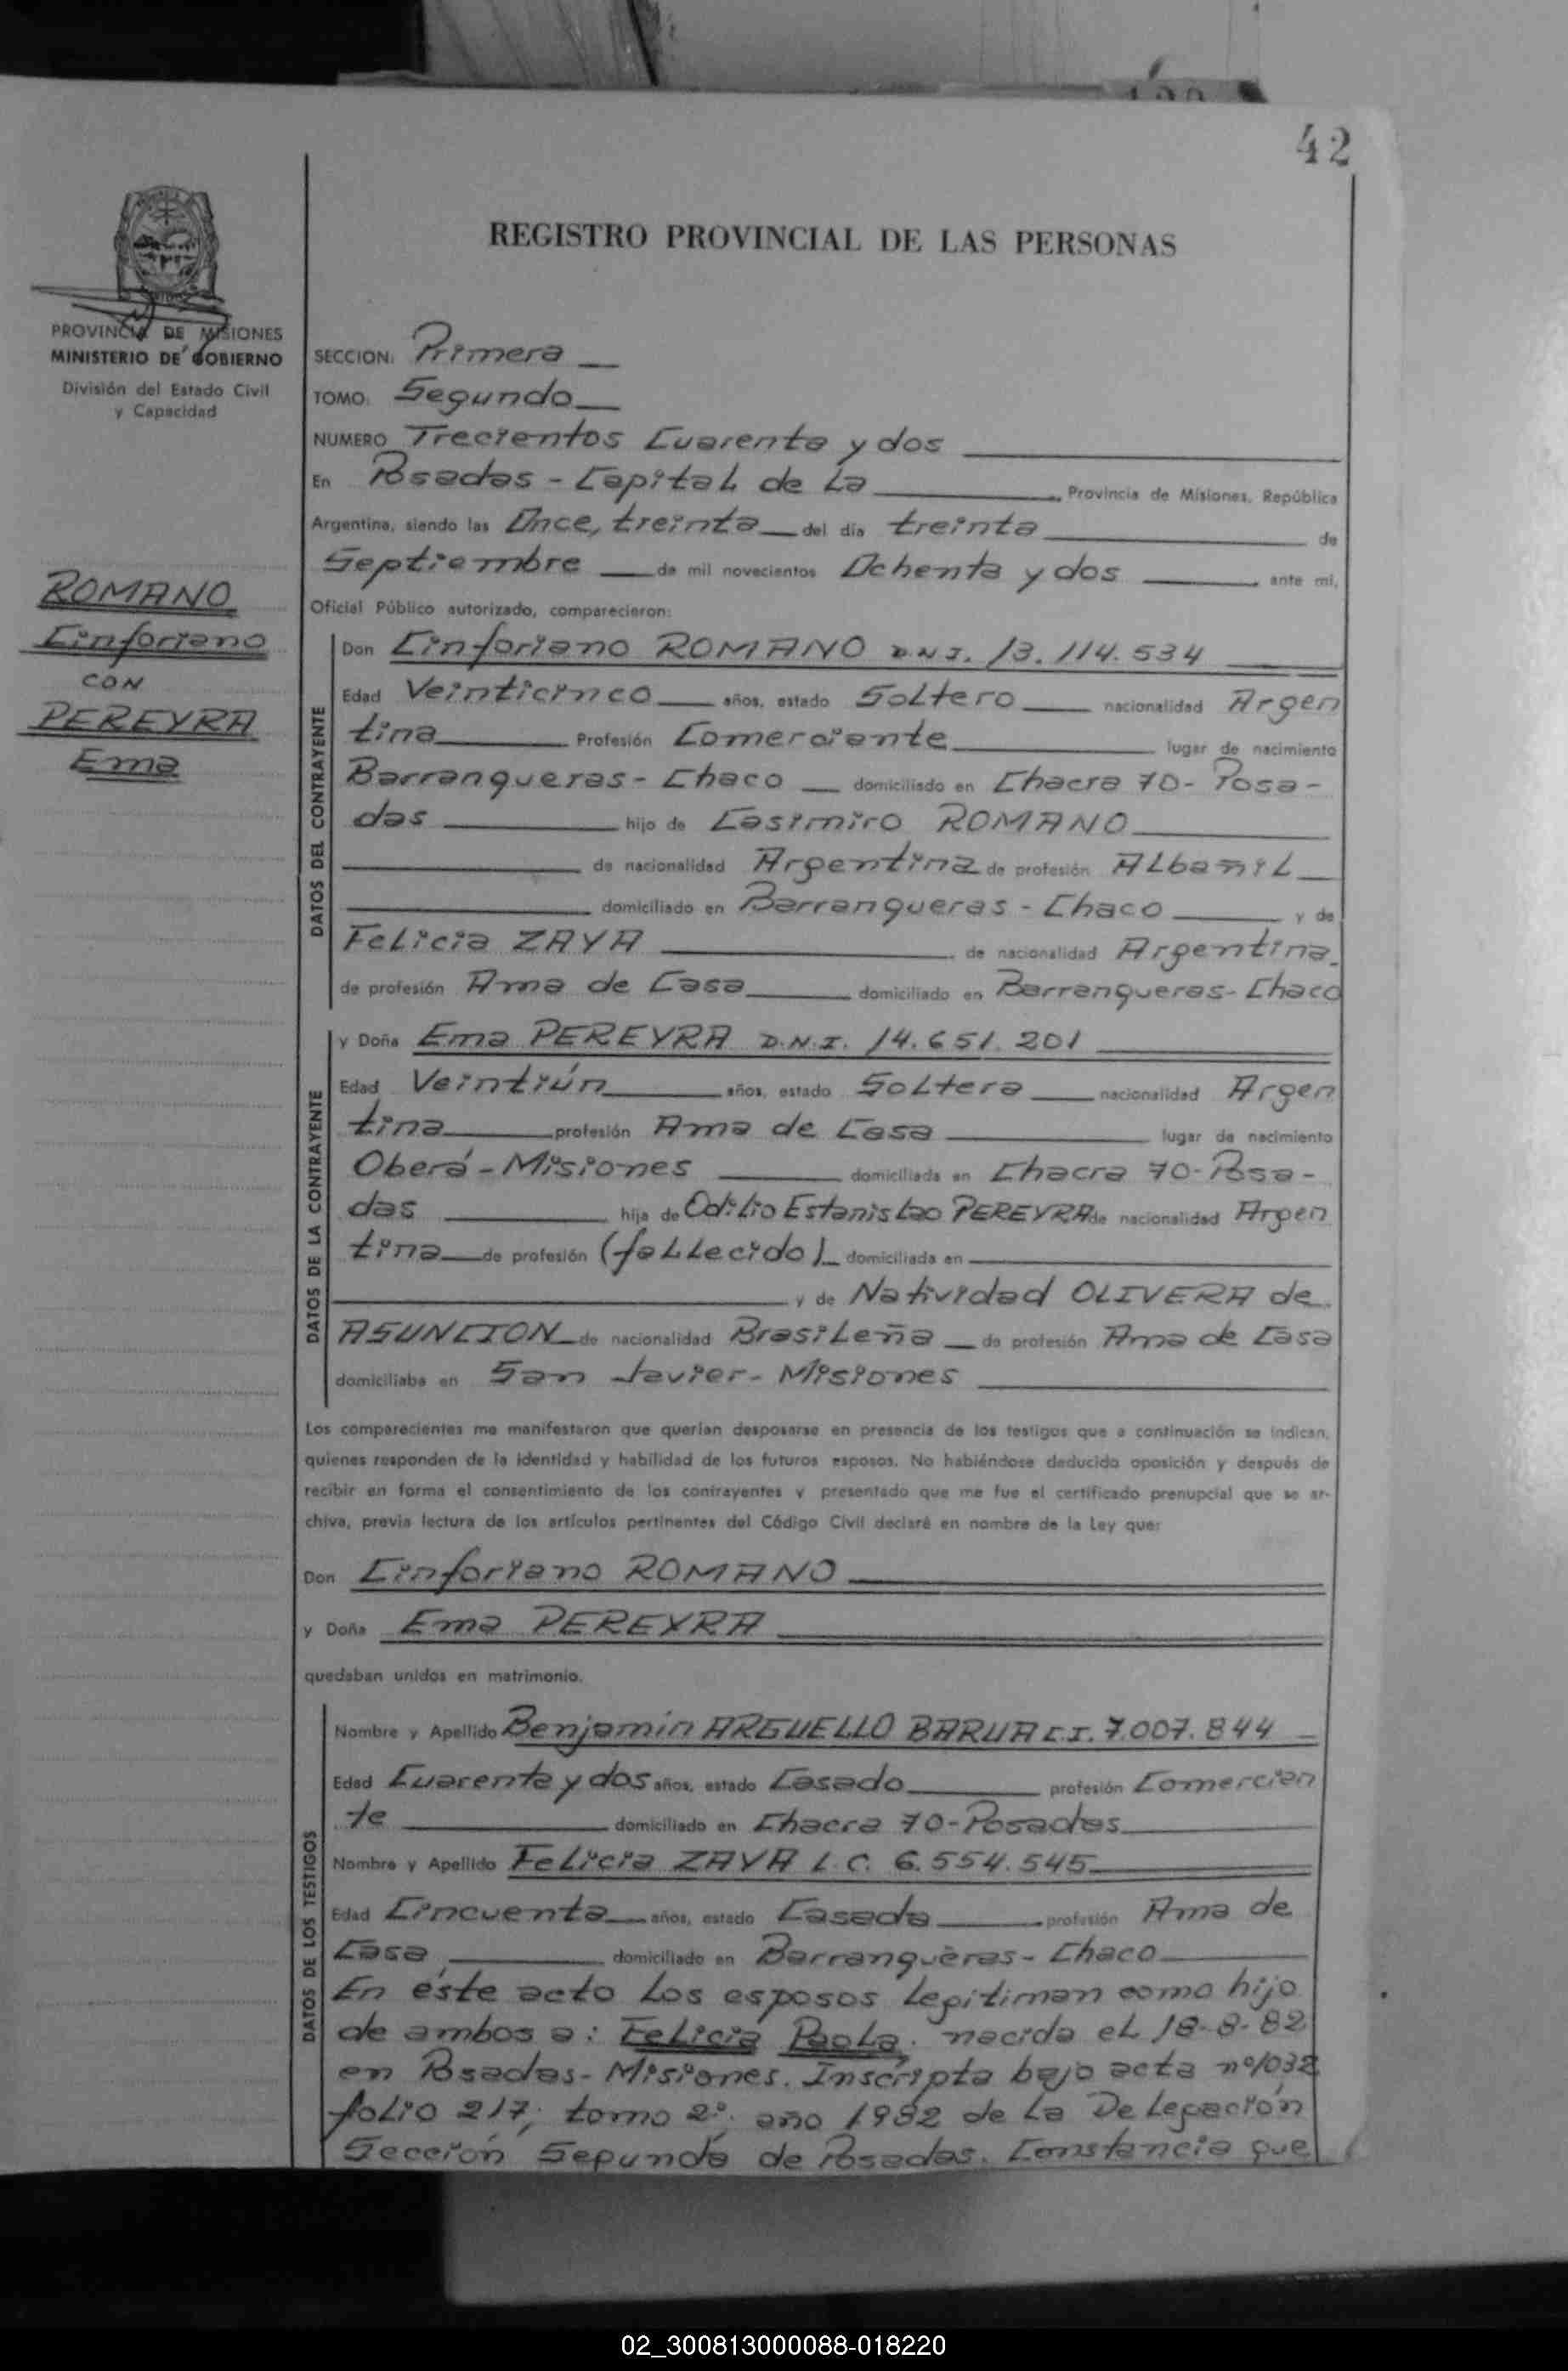 42
REGISTRO PROVINCIAL DE LAS PERSONAS
PROVINCIA DE MISIONES
MINISTERIO DE GOBIERNO
División del Estado Civil
y Capacidad
ROMANO
Cinforiano
CON
PEREYRA
Ema
SECCION: Primera
TOMO: Segundo
NUMERO Trecientos Cuarenta y dos
En Posadas - Capital de La Provincia de Misiones, República
Argentina, siendo las Once, treinta del día treinta de
Septiembre de mil novecientos Ochenta y dos ante mi,
Oficial Público autorizado, comparecieron:
DATOS DEL CONTRAYENTE
Don Cinforiano ROMANO D.N.I. 13.114.534
Edad Veinticinco años, estado Soltero nacionalidad Argen
tina Profesión Comerciante lugar de nacimiento
Barranqueras - Chaco domiciliado en Chacra 70 - Posa-
das hijo de Casimiro ROMANO
de nacionalidad Argentina de profesión Albañil
domiciliado en Barranqueras - Chaco y de
Felicia ZAYA de nacionalidad Argentina
de profesión Ama de Casa domiciliado en Barranqueras - Chaco
DATOS DE LA CONTRAYENTE
y Doña Ema PEREYRA D.N.I. 14.651.201
Edad Veintiún años, estado Soltera nacionalidad Argen
tina profesión Ama de Casa lugar de nacimiento
Oberá - Misiones domiciliada en Chacra 70 - Posa-
das hija de Odilio Estanislao PEREYRA de nacionalidad Argen
tina de profesión (fallecido) domiciliada en
y de Natividad OLIVERA de
ASUNCION de nacionalidad Brasileña de profesión Ama de Casa
domiciliaba en San Javier - Misiones
Los comparecientes me manifestaron que querían desposarse en presencia de los testigos que a continuación se indican,
quienes responden de la identidad y habilidad de los futuros esposos. No habiéndose deducido oposición y después de
recibir en forma el consentimiento de los contrayentes y presentado que me fue el certificado prenupcial que se ar-
chiva, previa lectura de los artículos pertinentes del Código Civil declaré en nombre de la Ley que:
Don Cinforiano ROMANO
y Doña Ema PEREYRA
quedaban unidos en matrimonio.
DATOS DE LOS TESTIGOS
Nombre y Apellido Benjamín ARGUELLO BARUA C.I. 7.007.844
Edad Cuarenta y dos años, estado Casado profesión Comercian
te domiciliado en Chacra 70 - Posadas
Nombre y Apellido Felicia ZAYA L.C. 6.554.545
Edad Cincuenta años, estado Casada profesión Ama de
Casa domiciliado en Barranqueras - Chaco
En éste acto los esposos legitiman como hijo
de ambos a: Felicia Paola. nacida el 18-8-82
en Posadas - Misiones. Inscripta bajo acta nº 1032
folio 217, tomo 2º, año 1982 de la Delegación
Sección Segunda de Posadas. Constancia que
02_300813000088-018220